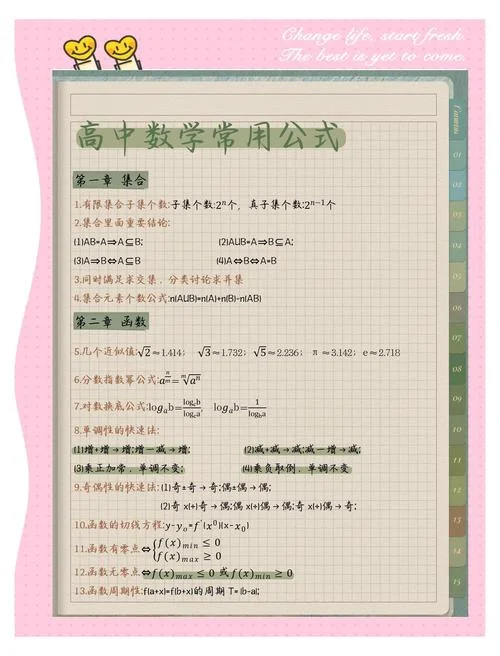 Change life, start fresh.
The best is yet to come.
高中数学常用公式
第一章 集合
1.有限集合子集个数:子集个数:2ⁿ个，真子集个数:2ⁿ⁻¹个
2.集合里面重要结论:
(1)AB=A⇒A⊆B; (2)AUB=A⇒B⊆A;
(3)A⇒B⇔A⊆B (4)A⇔B⇔A=B
3.同时满足求交集，分类讨论求并集
4.集合元素个数公式:n(AUB)=n(A)+n(B)-n(AB)
第二章 函数
5.几个近似值:√2≈1.414; √3≈1.732; √5≈2.236; π≈3.142; e≈2.718
6.分数指数幂公式:a^(n/m)=ᵐ√aⁿ
7.对数换底公式:log_a b=log_c b/log_c a; log_a b=1/log_b a
8.单调性的快速法:
(1)增+增→增;增－减→增; (2)减+减→减;减－增→减;
(3)乘正加常，单调不变; (4)乘负取倒，单调不变
9.奇偶性的快速法:(1)奇±奇→奇;偶±偶→偶;
(2)奇x(÷)奇→偶;偶x(÷)偶→偶;奇x(÷)偶→奇;
10.函数的切线方程:y-y₀=f'(x⁰)(x-x₀)
11.函数有零点⇔{f(x)min≤0
f(x)max≥0
12.函数无零点⇔f(x)max≤0 或 f(x)min≥0
13.函数周期性:f(a+x)=f(b+x)的周期 T=|b-a|;
01
02
03
04
05
06
07
08
09
10
11
12
13
14
15